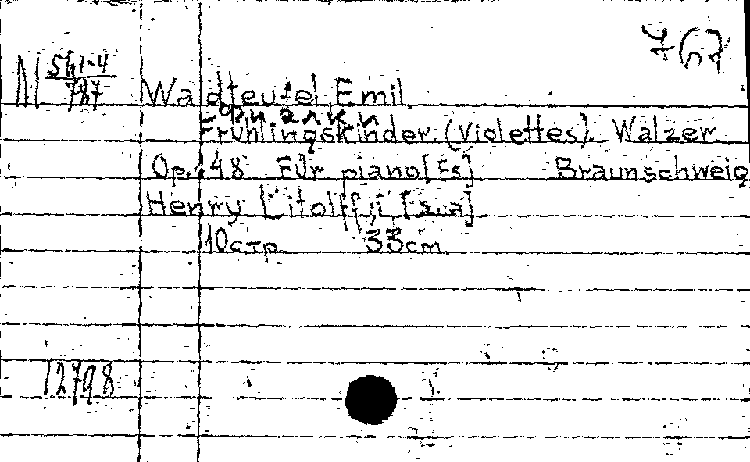 767
N 5h1-4/787
Waldteufel Emil.
Frühlingskinder (Violettes). Walzer
Op. 148 Für piano [Es] Braunschweig
Henry Litolff,i [s.a]
10 стр 33 cm
12798